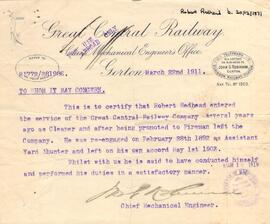 Robert Redhead b. 20/2/1871
Great Central Railway.
Chief Mechanical Engineer's Office.
Gorton, March 22nd 1911.
JOHN G. ROBINSON,
GORTON.
R1772/281986.
TO WHOM IT MAY CONCERN.
This is to certify that Robert Redhead entered
the service of the Great Central Railway Company several years
ago as Cleaner and after being promoted to Fireman left the
Company. He was re-engaged on February 28th 1892 as Assistant
Yard Shunter and left on his own accord May 1st 1902.
Whilst with us he is said to have conducted himself
and performed his duties in a satisfactory manner.
Chief Mechanical Engineer.